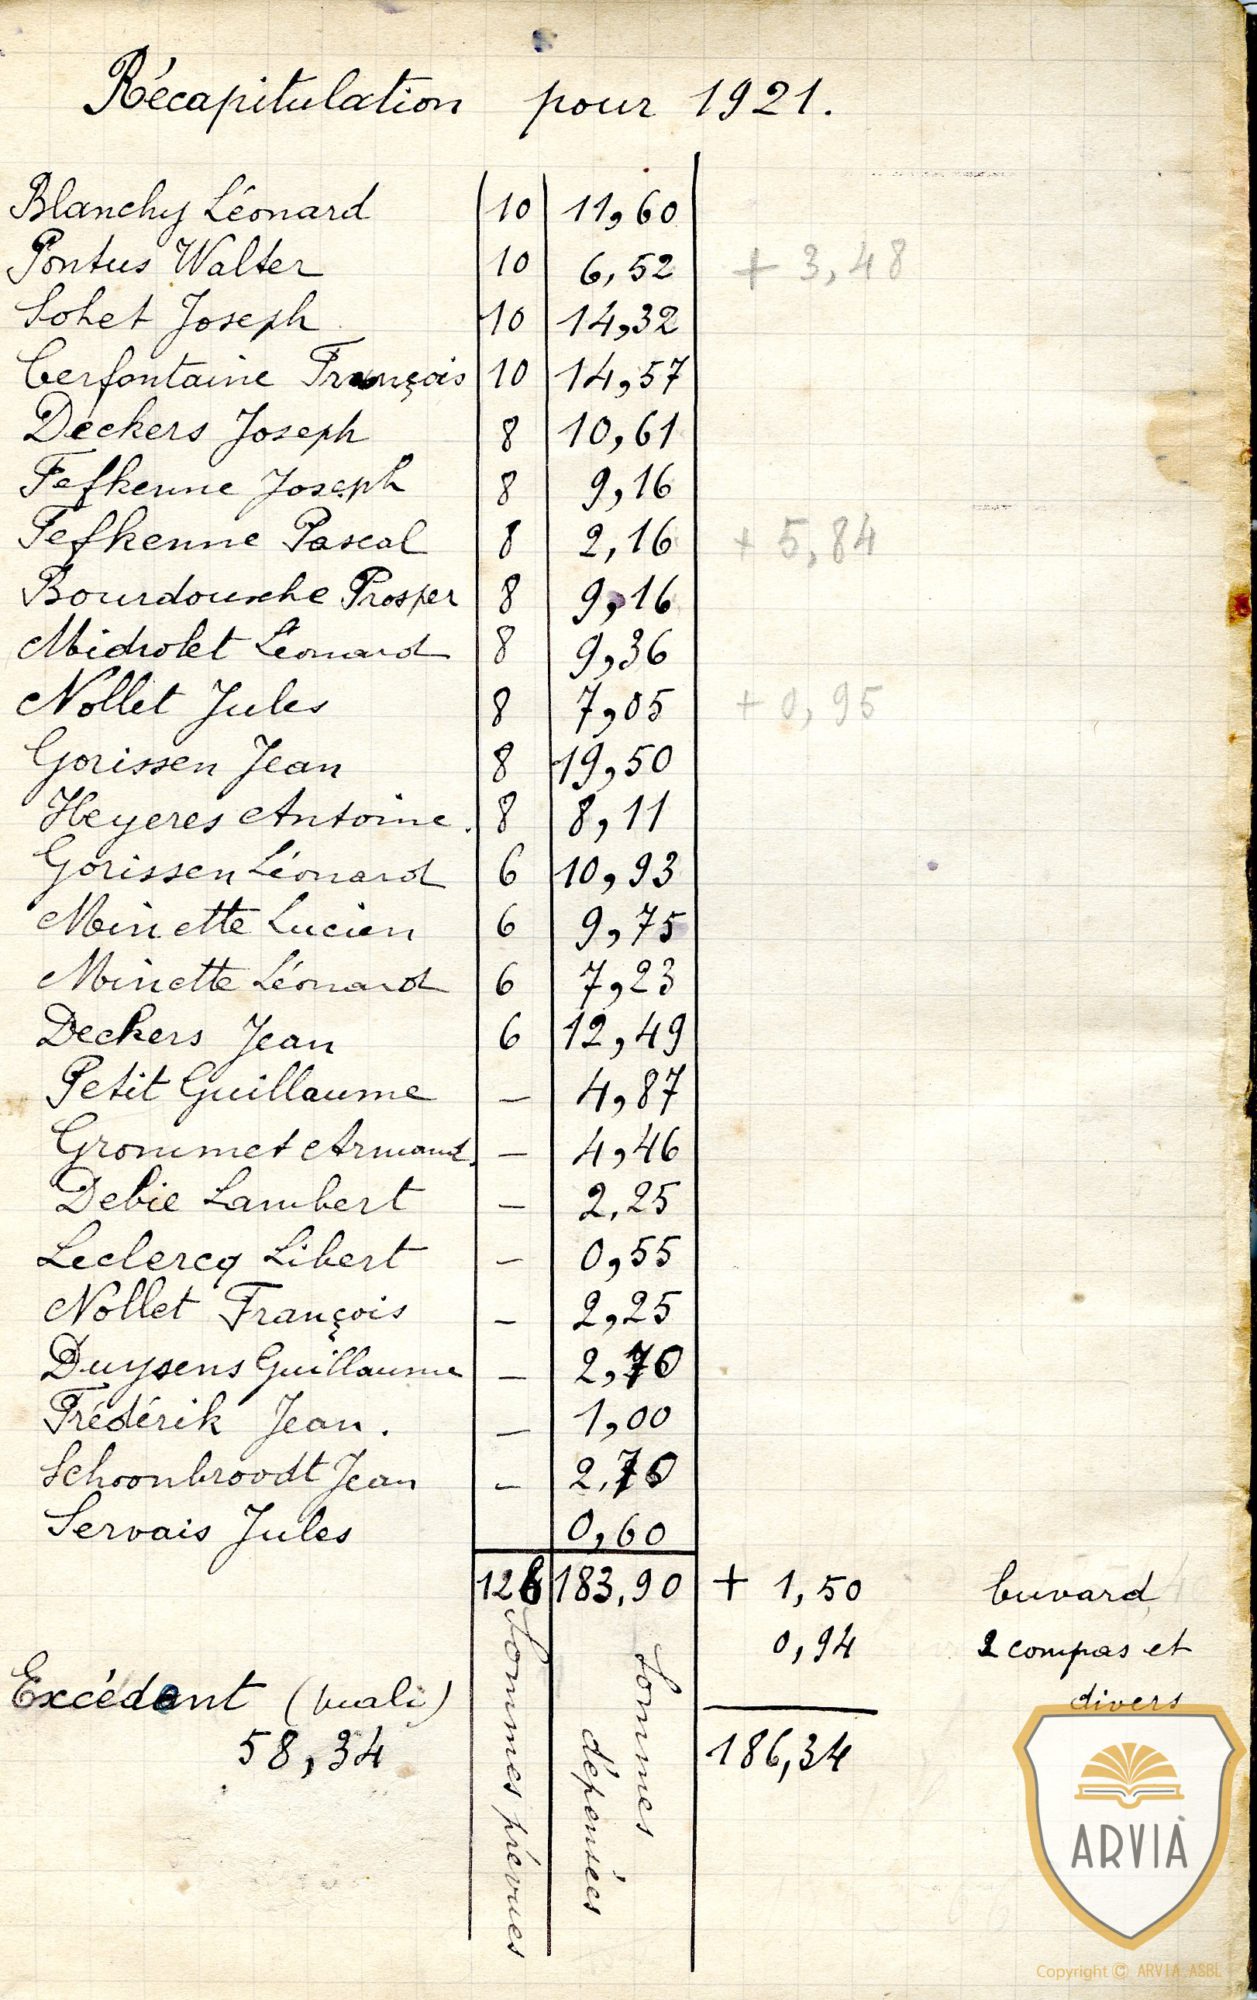 Récapitulation pour 1921.
Blanchy Léonard 10 11,60
Pontus Walter 10 6,52 + 3,48
Sohet Joseph 10 14,32
Cerfontaine François 10 14,57
Deckers Joseph 8 10,61
Fefkenne Joseph 8 9,16
Fefkenne Pascal 8 2,16 + 5,84
Bourdouxhe Prosper 8 9,16
Midrolet Léonard 8 9,36
Nollet Jules 8 7,05 + 0,95
Gorissen Jean 8 19,50
Heyeres Antoine. 8 8,11
Gorissen Léonard 6 10,93
Minette Lucien 6 9,75
Minette Léonard 6 7,23
Deckers Jean 6 12,49
Petit Guillaume – 4,87
Grommet Armand. – 4,46
Debie Lambert – 2,25
Leclercq Libert – 0,55
Nollet François – 2,25
Duysens Guillaume – 2,70
Frédérik Jean. – 1,00
Schoonbroodt Jean – 2,70
Servais Jules 0,60
126 183,90 + 1,50 buvard
0,94 2 compas et
divers
Excédent (mali)
58,34
186,34
Sommes prévues
Sommes
dépensées
ARVIA
Copyright © ARVIA ASBL